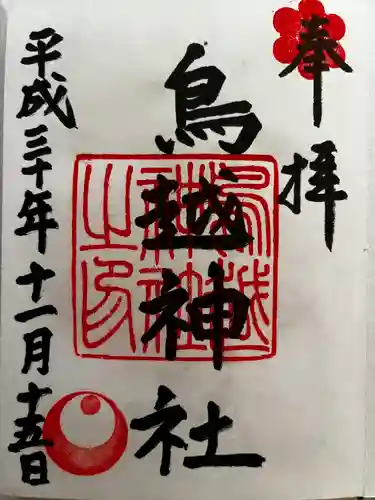 奉拝
鳥越神社
鳥越神社之印
平成三十年十一月十五日